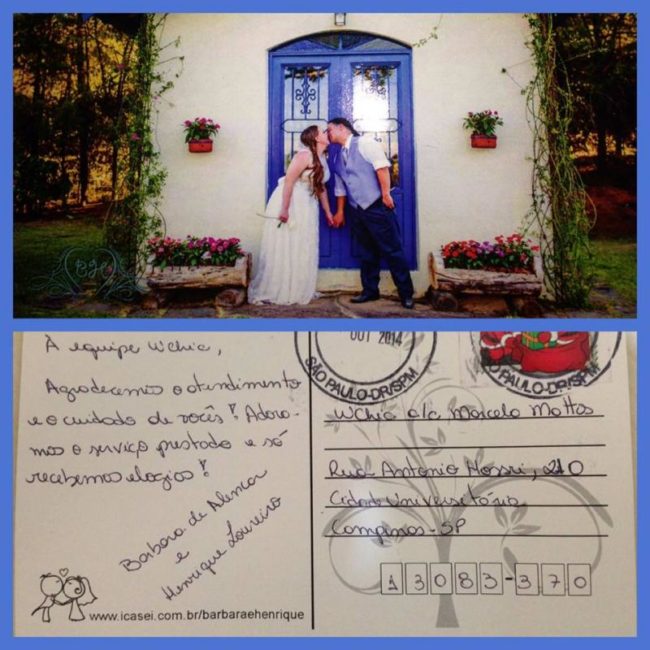 À equipe Wchic,
Agradecemos o atendimento
e o cuidado de vocês! Adora-
mos o serviço prestado e só
recebemos elogios!
Barbara de Alencar
e
Henrique Loureiro
www.icasei.com.br/barbaraehenrique
OUT 2014
SÃO PAULO-DR/SPM
SÃO PAULO-DR/SPM
Wchic a/c Marcelo Mattos
Rua Antonio Hossri, 210
Cidade Universitária
Campinas-SP
13083-370